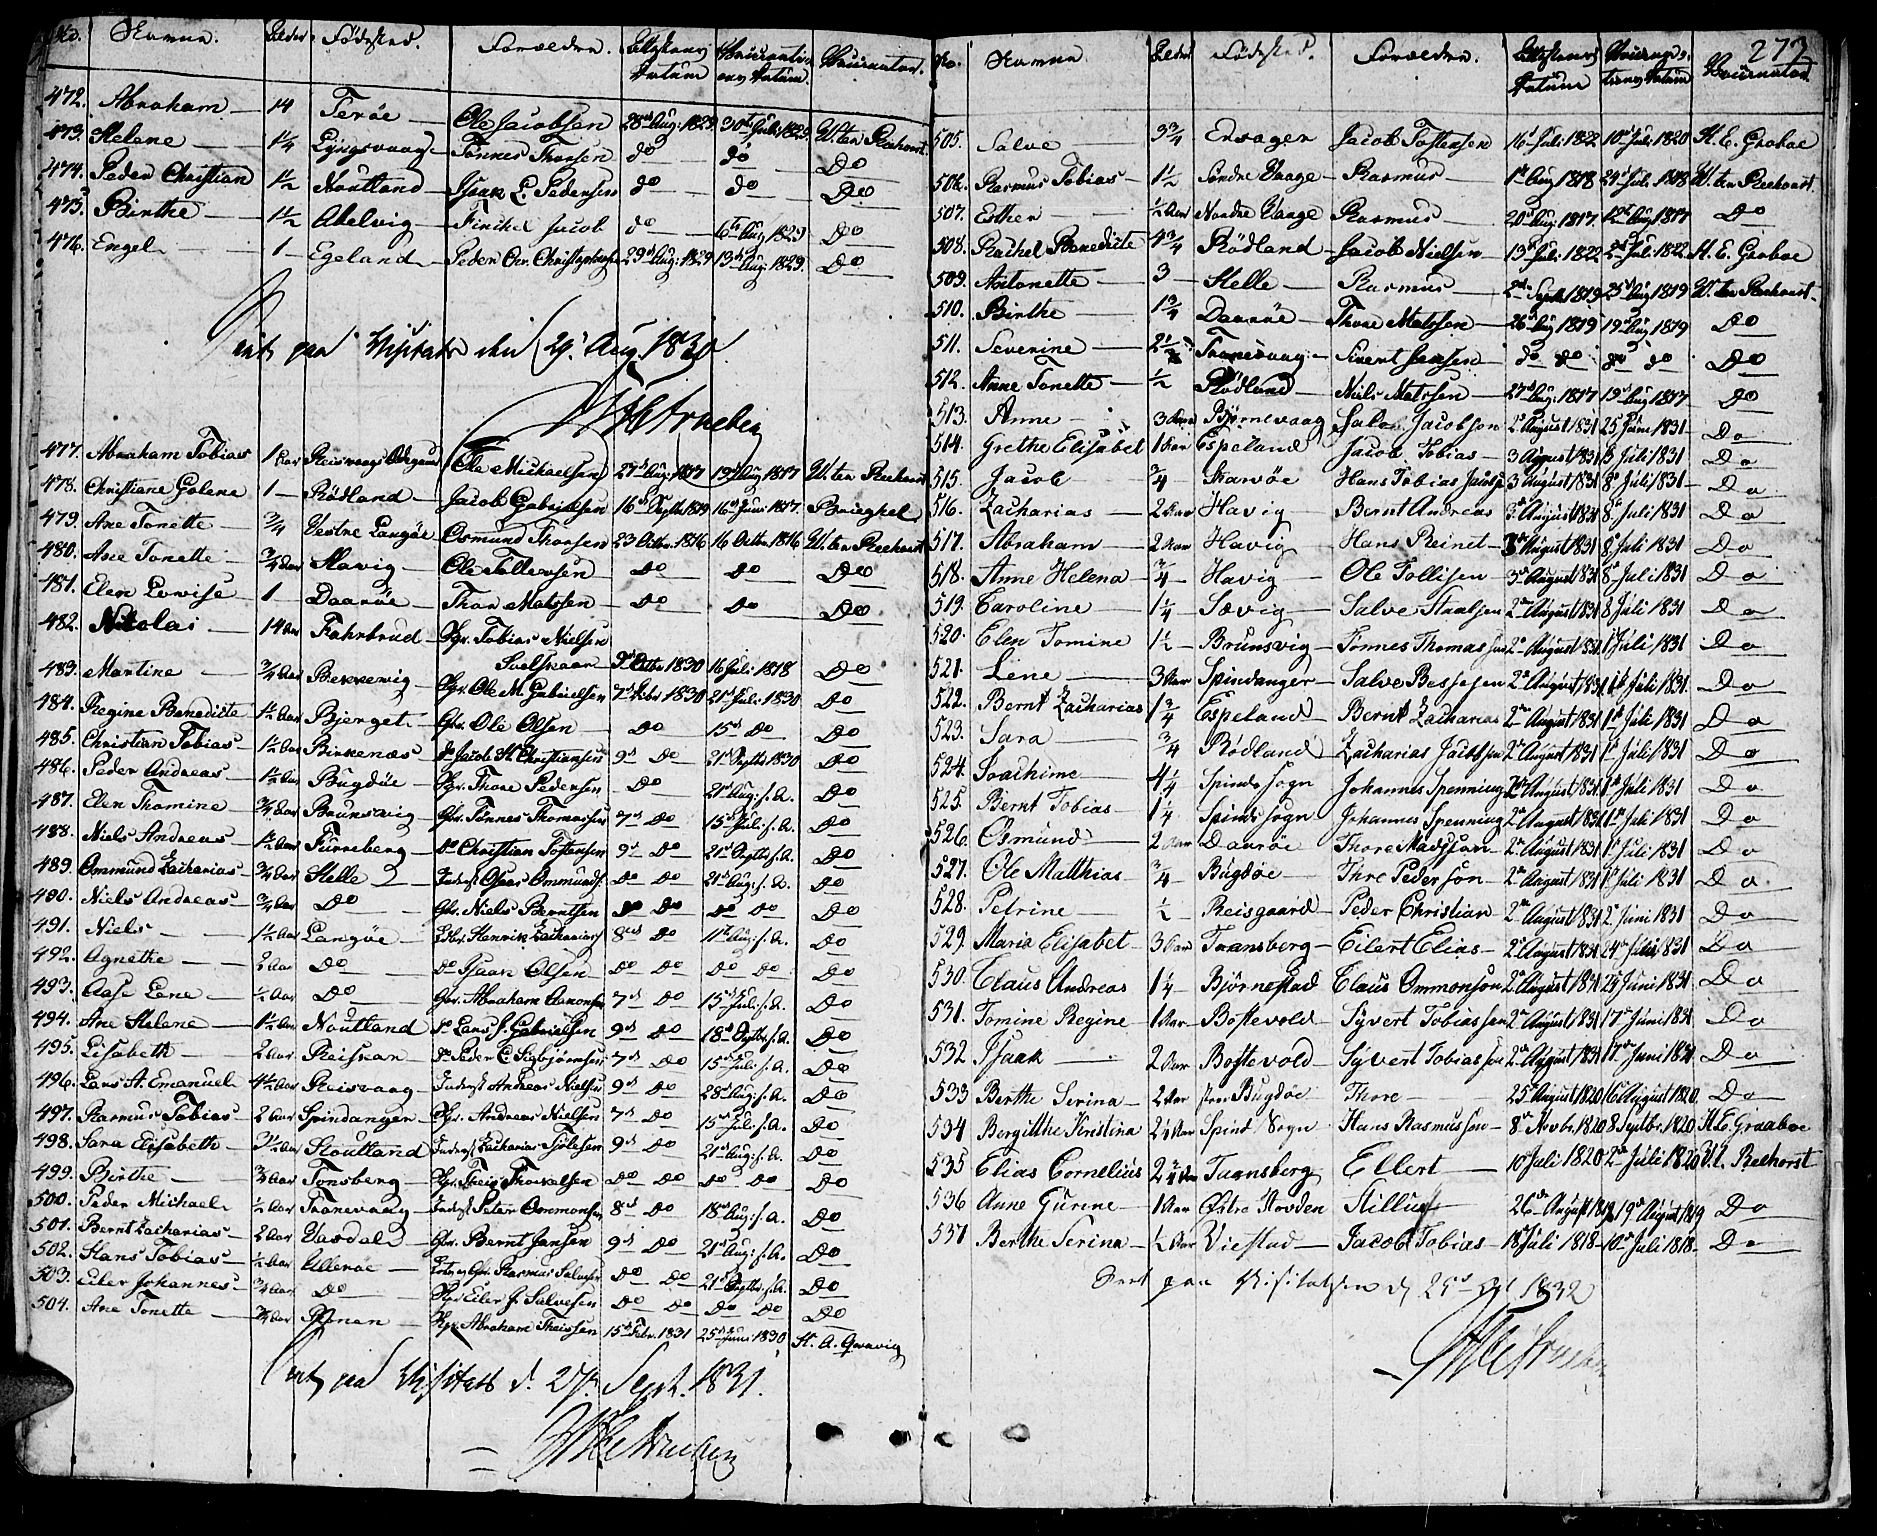 No. Navne. Alder Fødested. Forældre. Attestens Datum Vaccinationens Datum. Vaccinator.
472. Abraham — 14 Terøe — Ole Jacobsen 28de Aug: 1829 30te Juli 1829. W. ten Reehorst.
473. Helene — 1¼ Lyngsvaag — Tønnes Thorsen do — do — Do
474. Peder Christian 1½ Noutland — Isaak L. Pedersen do — do — Do
475. Birthe — 1½ Abelvig — Jacob do — 6te Aug 1829 Do
476. Engel — 1 — Egeland — Peder Chr. Christophersen 29de Aug: 1829 13de Aug: 1829. Do
Seet paa Visitats den 29 Aug. 1830.
477. Abraham Tobias 1 Aar Reisvaags Ødegaard Ole Michaelsen 27de Aug: 1817 19de Aug 1817 W. ten Reehorst
478. Christiane Golene 1 — Rødland — Jacob Gabrielsen 16de Septbr 1819 16de Juni 1817. Brieghel
479. Ane Tonette — ¾ Vestre Langøe — Osmund Thorsen 23 Octbr. 1816 16 Octbr. 1816 W. ten Reehorst
480. Ane Tonette — ¾ Aar Havig — Ole Tollevsen Do — Do — Do
481. Elen Lovise — 1 — Daarøe — Thore Matssen — Do — Do — Do
482. Nicolai — 14 Aar Fahrbrud — Gbr. Tobias Nielsen
Suelskaar 9de Octbr 1830 16 Juli 1818 Do
483. Martine — ¾ Aar Bekkevig — Gbr. Ole M. Gabrielsen 7de Febr 1830 21de Juli: 1830 Do
484. Regine Benedicte 1½ Aar Bjerget — Gbr. Ole Olsen — Do — 15de Do — Do
485. Christian Tobias — 1½ Aar Birkenæs — Do Jacob H. Christiansen 9de Do — 21de Septbr 1830 Do
486. Peder Andreas — 1½ Aar Bugdøe — Gbr. Thore Pedersen — Do — 21de Aug: s. A. Do
487. Elen Thomine — ¾ Aar Brunsvig — Gbr. Tønnes Thomassen 7de Do — 15de Juli: s. A. Do
488. Niels Andreas — 1½ Aar Furreberg — Do Christian Tostensen 9de Do — 21de Septbr s. A. Do
489. Ommund Zacharias — ¾ Aar Helle — Inderst Osmund Do Do — 21de Aug: s. A. Do
490. Niels Andreas — ¾ Aar Do — Gbr. Niels Berntsen Do Do — Do Do — Do
491. Niels — 1½ Aar Langøe — Henrik Zachariasen 8de Do — 11te Aug: s. A. Do
492. Agnethe — Aar Do — Do Isaak Olsen — Do Do — Do Do — Do
493. Aase Lene — ½ Aar Do — Gbr. Abraham Aanonsen 7de Do — 15de Juli: s. A. Do
494. Ane Helene — 1½ Aar Noutland Do Lars J. Gabrielsen 9de Do — 18de Septbr s. A. Do
495. Lisabeth — 2 Aar Reiskaar — Do Peder C. Sigbjørnsen 7de Do — 15de Juli s. A. Do
496. Lars A. Emanuel — 4½ Aar Reisvaag — Inderst Andreas Nielsen 9de Do — 28de Aug: s. A. Do
497. Rasmus Tobias — 2 Aar Spindanger Gbr. Andreas Nielsen — 7de Do — 15de Juli: s. A. Do
498. Sara Elisabeth — 3½ Aar Stoutland Inderst Zacharias 9de Do — 21de Aug: s. A. Do
499. Birthe — ¾ Aar Tonsberg — Gbr. Theis Thorkelsen Do Do — Do Do — Do
500. Peder Michael — ½ Aar Tranevaag Inderst Peter Ommonsen 8de Do — 18de Aug: s. A. Do
501. Bernt Zacharias — 2 Aar Vasdal — Gbr. Bernt Jansen 9de Do — 21de Aug: s. A. Do
502. Hans Tobias — ½ Aar Ullerøe — Gbr. Rasmus Salvesen Do Do — 21de Septbr s. A. Do
503. Eiler Johannes — ¾ Aar Do — Gbr Eiler J. Salvesen Do Do — Do Do — Do
504. Ane Tonette — ¾ Aar Penen — Gbr. Abraham Theissen 15de Febr. 1831 25de Juni: 1830 H. A. Gravvig
Seet paa Visitats d. 27de Sept. 1831.
277
No. Navne Alder Fødested. Forældre. Attestens Datum Vaccinationens Datum Vaccinator
505. Salve — 3¾ Ersager Jacob Tostensen 16de Juli 1822 10de Juli 1820 H. E. Groboe
506. Rasmus Tobias — 1½ Søndre Vaage — Rasmus — 1de Aug 1818 24de Juli 1818 W. ten Reehorst.
507. Esther — ½ Aar Nordre Vaage Rasmus — 20de Aug 1817 12te Aug 1817 Do
508. Rachel Benedicte 4¾ Rødland — Jacob Nielsen — 13de Juli 1822 2de Juli 1822. H. E. Groboe
509. Antonette — 3 — Helle — Rasmus — 2de Septbr 1819 25de Aug 1819 W. ten Reehorst.
510. Birthe — 1¾ Daarøe — Thore Matssen — 26de Aug 1819 19de Aug 1819 Do
511. Severine — 2½ Tranevaag — Sivert Jansen — do do do do Do
512. Anne Tonette — ½ Rødland — Niels Matssen — 27de Aug: 1817 19de Aug 1817 Do
513. Anne — 3 Aar Bjørnevaag Salve Jacobsen 2de August 1831 25 Juni 1831 — Do
514. Grethe Elisabet 1 Aar Espeland Jacob Tobias — 3 August 1831 8 Juli 1831 — Do
515. Jacob — ¾ Skarvøe Hans Tobias Jacobsen 3 August 1831 8de Juli 1831 — Do
516. Zacharias — 2 Aar Havig — Bernt Andreas 3de August 1831 8de Juli 1831 Do
517. Abraham — 2 Aar Havig Hans Reinet — 3de August 1831 8de Juli 1831 Do
518. Anne Helena — ¾ Havig Ole Tollisen — 3de August 1831 8de Juli 1831 Do
519. Caroline — 1¼ Sævig — Salve Staalsen 2den August 1831 8 Juli 1831 Do
520. Elen Tomine 1½ Brunsvig — Tønnes Thomassen 2de August 1831 1 Juli 1831 Do
521. Lene — 3 Aar Spindanger — Salve Bessesen 2de August 1831 1de Juli 1831. Do
522. Bernt Zacharias 1¾ Espeland — Bernt Zacharias 2den August 1831 1de Juli 1831 Do
523. Sara — ¾ Rødland Zacharias Jacobsen 2de August 1831 1de Juli 1831 Do
524. Joachime — 4¼ Spinds Sogn Johannes Spenning 2de August 1831 1de Juli 1831 Do
525. Bernt Tobias — 1¼ Spinds Sogn Johannes Spenning 2de August 1831 1de Juli 1831 Do
526. Osmund — 2 Aar Daarøe Thore Madssøn — 2de August 1831 1de Juli 1831 Do
527. Ole Matthias — ¾ Bugdøe — Thre Pedersøn — 2de August 1831 1de Juli 1831 Do
528. Petrine — ½ Reisgaard — Peder Christian 2de August 1831 2de Juni 1831 Do
529. Maria Elisabet — 3 Aar Taansberg — Eilert Elias — 2de August 1831 24de Juni 1831 Do
530. Claus Andreas 1¼ Bjørnestad Claus Ommonsøn 2de August 1831 24 Juni 1831 Do
531. Tomine Regine — 1 Aar — Bostevold — Syvert Tobiassen 2de August 1831 17de Juni 1831 Do
532. Isaak — 2 Aar Bostevold — Syvert Tobiassøn 2de August 1831 17de Juni 1831 Do
533 Berthe Serina — 2 Aar Store Bugdøe Thore — 25de August 1820 16 August 1820. Do
534 Bergitthe Kristina 2¼ Aar Spind Sogn Hans Rasmussøn — 8de Novbr. 1820 8 Septbr. 1820 H. E. Graaboe
535 Elias Cornelius 2¼ Aar Taansberg Ellert — 10de Juli 1820 2de Juli 1820 W. t. Reehorst
536 Anne Gurine — 1 Aar Østre Hovden 26de August 1819 19de August 1819 Do
537 Berthe Serina — ½ Aar Viestad — Jacob Tobias — 18de Juli 1818 — 10de Juli 1818 — Do
Seet paa Visitatsen d. 25de Sept 1832